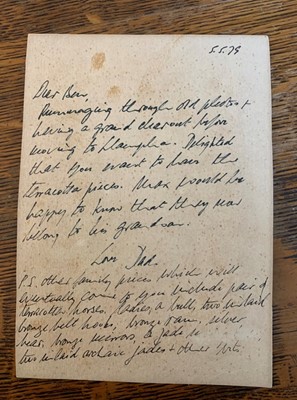 5.5.79
Dear Ben,
Rummaging through old photos +
having a grand clearout before
moving to
Delighted
that you want to have the
terracotta pieces. Max would be
happy to know that they now
belong to his grandson.
Love Dad.
P.S. other family pieces which will
eventually come to you include pair of
terracotta horses, ladies, a bull, two inlaid
bronze belt hooks, bronze ram, silver
bear, bronze mirrors, & jade
inlaid archaic jades + other